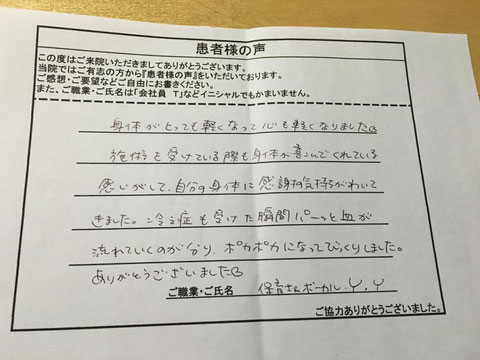 患者様の声
この度はご来院いただきましてありがとうございます。
当院ではご有志の方から『患者様の声』をいただいております。
ご感想・ご要望などご自由にお書きください。
また、ご職業・ご氏名は「会社員　T」などイニシャルでもかまいません。
身体がとっても軽くなって心も軽くなりました
施術を受けている際も身体が喜んでくれている
感じがして、自分の身体に感謝の気持ちがわいて
きました。冷え症も受けた瞬間パーッと血が
流れていくのが分り、ポカポカになってびっくりしました。
ありがとうございました
ご職業・ご氏名　保育士&ボーカル Y.Y
ご協力ありがとうございました。